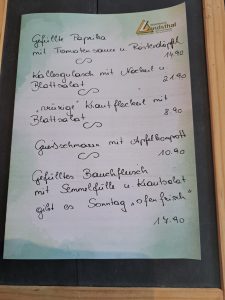 Gefüllte Paprika
mit Tomatensauce u Rösterdäpfel
14.90
Kalbsgulasch mit Nockerl u
Blattsalat
21.90
"würzige" Krautfleckerl mit
Blattsalat
8.90
mit Apfelkompott
10.90
Gefülltes Bauchfleisch
mit Semmelfülle u Krautsalat
gibt es Sonntag "ofenfrisch"
17.90